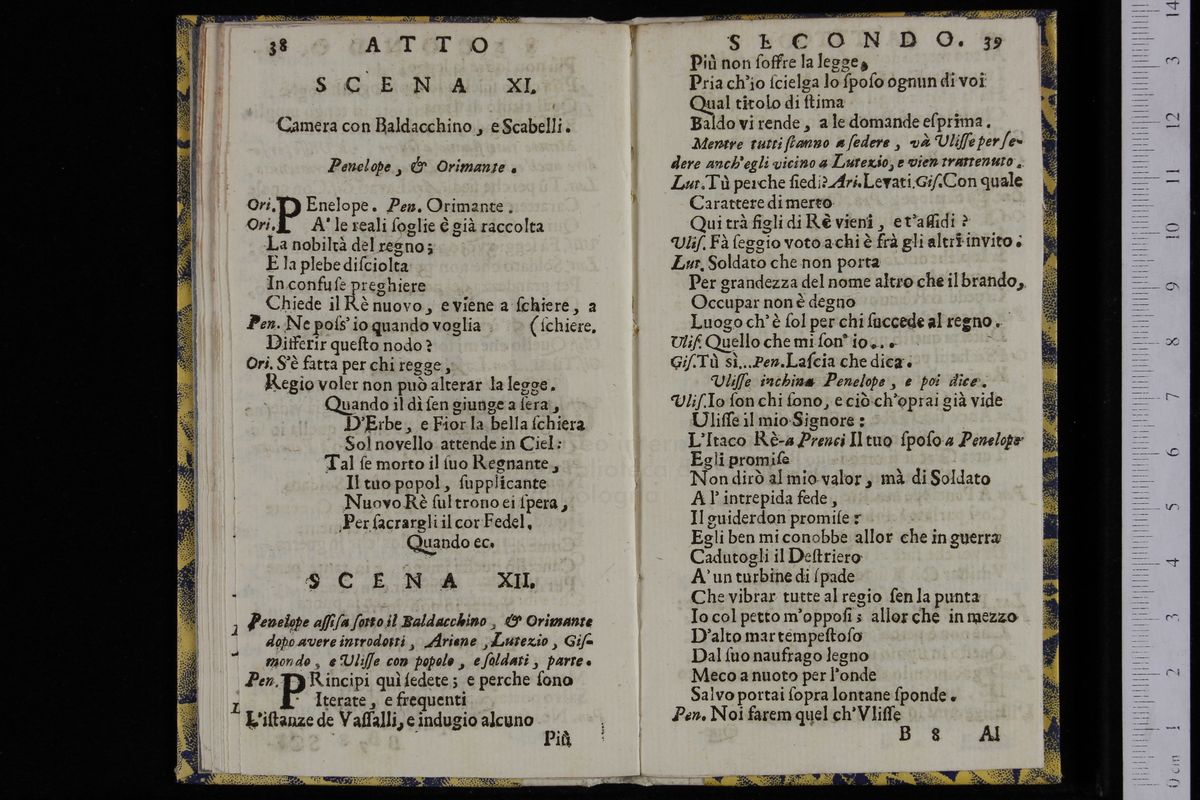 38 ATTO
SCENA XI.
Camera con Baldacchino, e Scabelli.
Penelope, & Orimante.
Ori. PEnelope. Pen. Orimante.
Ori. A' le reali ſoglie è già raccolta
La nobiltà del regno;
E la plebe diſciolta
In confuſe preghiere
Chiede il Rè nuovo, e viene a ſchiere, a
Pen. Ne poſs' io quando voglia (ſchiere.
Differir queſto nodo?
Ori. S'è fatta per chi regge,
Regio voler non può alterar la legge.
Quando il dì ſen giunge a ſera,
D'Erbe, e Fior la bella ſchiera
Sol novello attende in Ciel:
Tal ſe morto il ſuo Regnante,
Il tuo popol, ſupplicante
Nuovo Rè ſul trono ei ſpera,
Per ſacrargli il cor Fedel.
Quando ec.
SCENA XII.
Penelope aſſiſa ſotto il Baldacchino, & Orimante
dopo avere introdotti, Ariene, Lutezio, Giſ-
mondo, e Uliſſe con popolo, e ſoldati, parte.
Pen. PRincipi quì ſedete; e perche ſono
Iterate, e frequenti
L'iſtanze de Vaſſalli, e indugio alcuno
Più
SECONDO. 39
Più non ſoffre la legge,
Pria ch'io ſcielga lo ſpoſo ognun di voi
Qual titolo di ſtima
Baldo vi rende, a le domande eſprima.
Mentre tutti ſtanno a ſedere, và Uliſſe per ſe-
dere anch'egli vicino a Lutezio, e vien trattenuto.
Lut. Tù perche ſiedi? Ari. Levati. Giſ. Con quale
Carattere di merto
Qui trà figli di Rè vieni, e t'aſſidi?
Uliſ. Fà ſeggio voto a chi è frà gli altri invito.
Lut. Soldato che non porta
Per grandezza del nome altro che il brando,
Occupar non è degno
Luogo ch'è ſol per chi ſuccede al regno.
Uliſ. Quello che mi ſon' io...
Giſ. Tù sì... Pen. Laſcia che dica.
Uliſſe inchina Penelope, e poi dice.
Uliſ. Io ſon chi ſono, e ciò ch'oprai già vide
Uliſſe il mio Signore:
L'Itaco Rè-a Prenci Il tuo ſpoſo a Penelope
Egli promiſe
Non dirò al mio valor, mà di Soldato
A l'intrepida fede,
Il guiderdon promiſe:
Egli ben mi conobbe allor che in guerra
Cadutogli il Deſtriero
A' un turbine di ſpade
Che vibrar tutte al regio ſen la punta
Io col petto m'oppoſi; allor che in mezzo
D'alto mar tempeſtoſo
Dal ſuo naufrago legno
Meco a nuoto per l'onde
Salvo portai ſopra lontane ſponde.
Pen. Noi farem quel ch'Uliſſe
B 8 Al